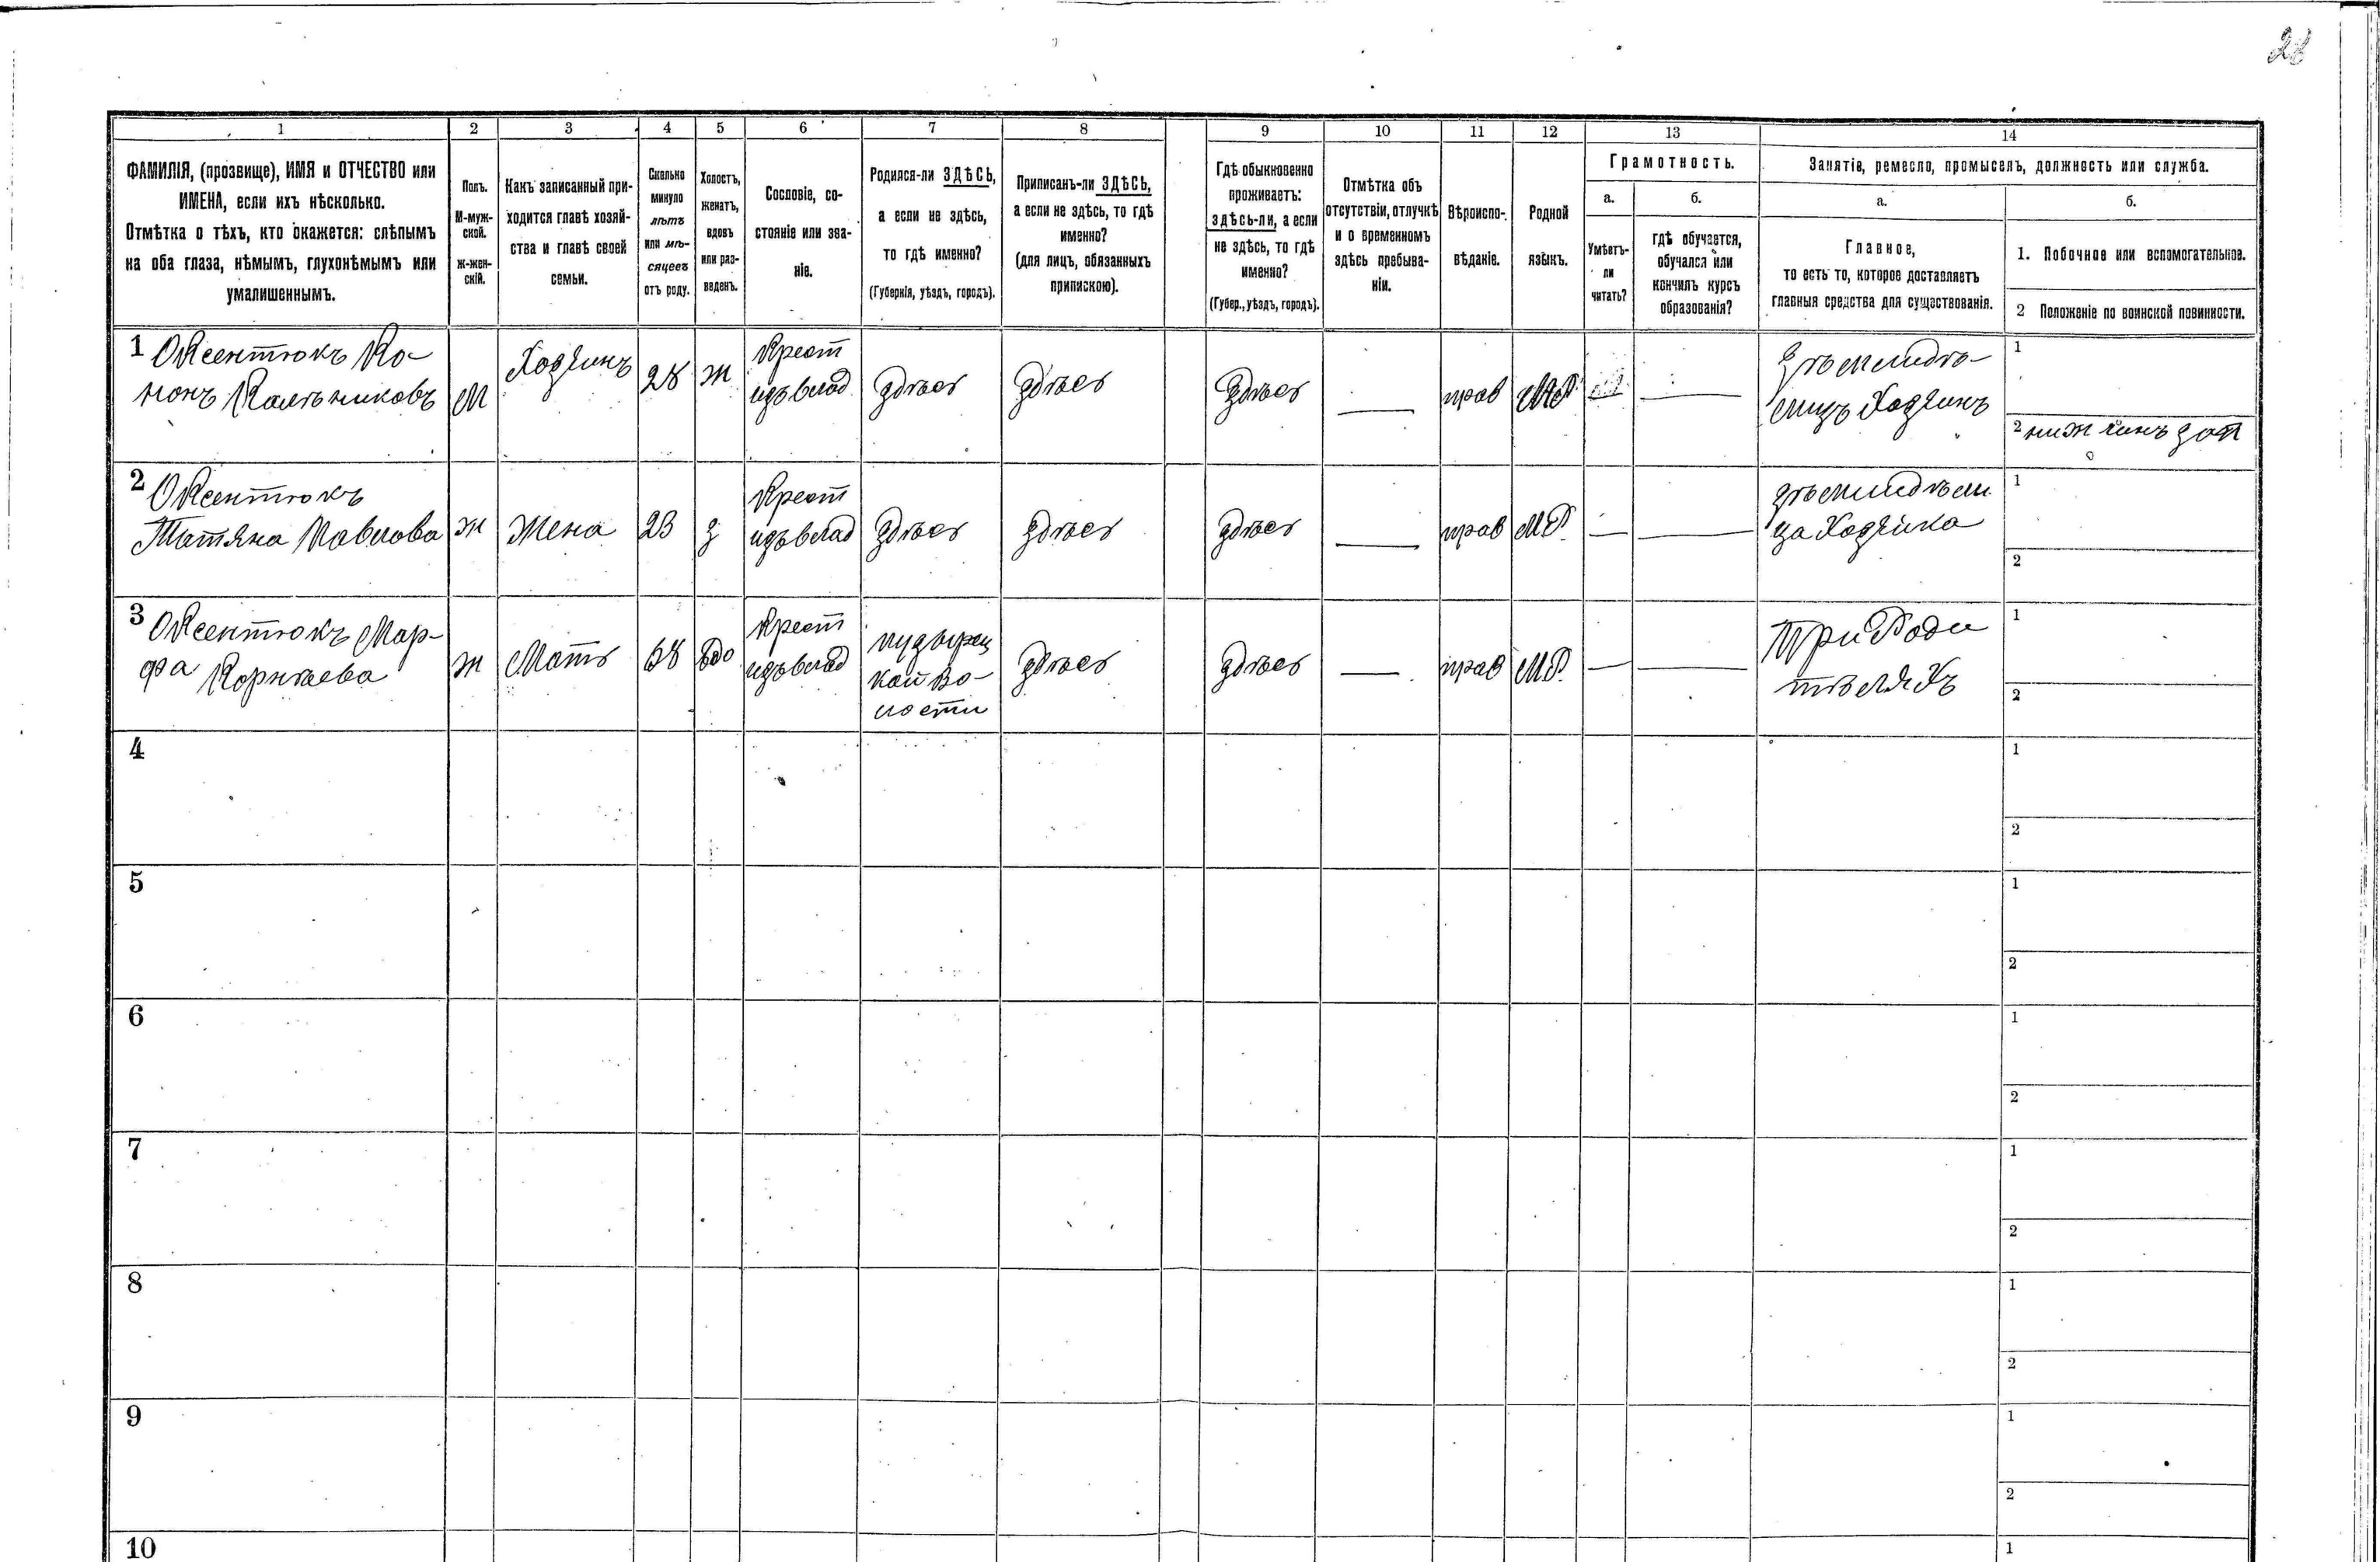 28
1 2 3 4 5 6 7 8 9 10 11 12 13 14
ФАМИЛІЯ, (прозвище), ИМЯ и ОТЧЕСТВО или
ИМЕНА, если ихъ нѣсколько.
Отмѣтка о тѣхъ, кто окажется: слѣпымъ
на оба глаза, нѣмымъ, глухонѣмымъ или
умалишеннымъ.
Полъ.
М-муж-
ской.
Ж-жен-
скій.
Какъ записанный при-
ходится главѣ хозяй-
ства и главѣ своей
семьи.
Сколько
минуло
лѣтъ
или мѣ-
сяцевъ
отъ роду.
Холостъ,
женатъ,
вдовъ
или раз-
веденъ.
Сословіе, со-
стояніе или зва-
ніе.
Родился-ли ЗДѢСЬ,
а если не здѣсь,
то гдѣ именно?
(Губернія, уѣздъ, городъ).
Приписанъ-ли ЗДѢСЬ,
а если не здѣсь, то гдѣ
именно?
(для лицъ, обязанныхъ
припискою).
Гдѣ обыкновенно
проживаетъ:
здѣсь-ли, а если
не здѣсь, то гдѣ
именно?
(Губер., уѣздъ, городъ).
Отмѣтка объ
отсутствіи, отлучкѣ
и о временномъ
здѣсь пребыва-
ніи.
Вѣроиспо-
вѣданіе.
Родной
языкъ.
Грамотность.
а.
Умѣетъ-
ли
читать?
б.
гдѣ обучается,
обучался или
кончилъ курсъ
образованія?
Занятіе, ремесло, промыселъ, должность или служба.
а.
Главное,
то есть то, которое доставляетъ
главныя средства для существованія.
б.
1. Побочное или вспомогательное.
2 Положеніе по воинской повинности.
1 Оксентюкъ Ко-
нонъ Калѣниковъ
М
Хозяинъ
28
Ж
Крест
изъ влад
здѣсь
здѣсь
здѣсь
прав
МР
Земледѣ-
лицъ Хозяинъ
1
2 ниж чинъ зап
2 Оксентюкъ
Татяна Павлова
Ж
Жена
23
з
Крест
изъ влад
здѣсь
здѣсь
здѣсь
прав
МР
земледѣли
ца Хозяйка
1
2
3 Оксентюкъ Мар-
фа Корнѣева
Ж
Мать
68
вдо
Крест
изъ влад
кой во-
лости
здѣсь
здѣсь
прав
МР
При Роди
тѣляхъ
1
2
4
1
2
5
1
2
6
1
2
7
1
2
8
1
2
9
1
2
10
1